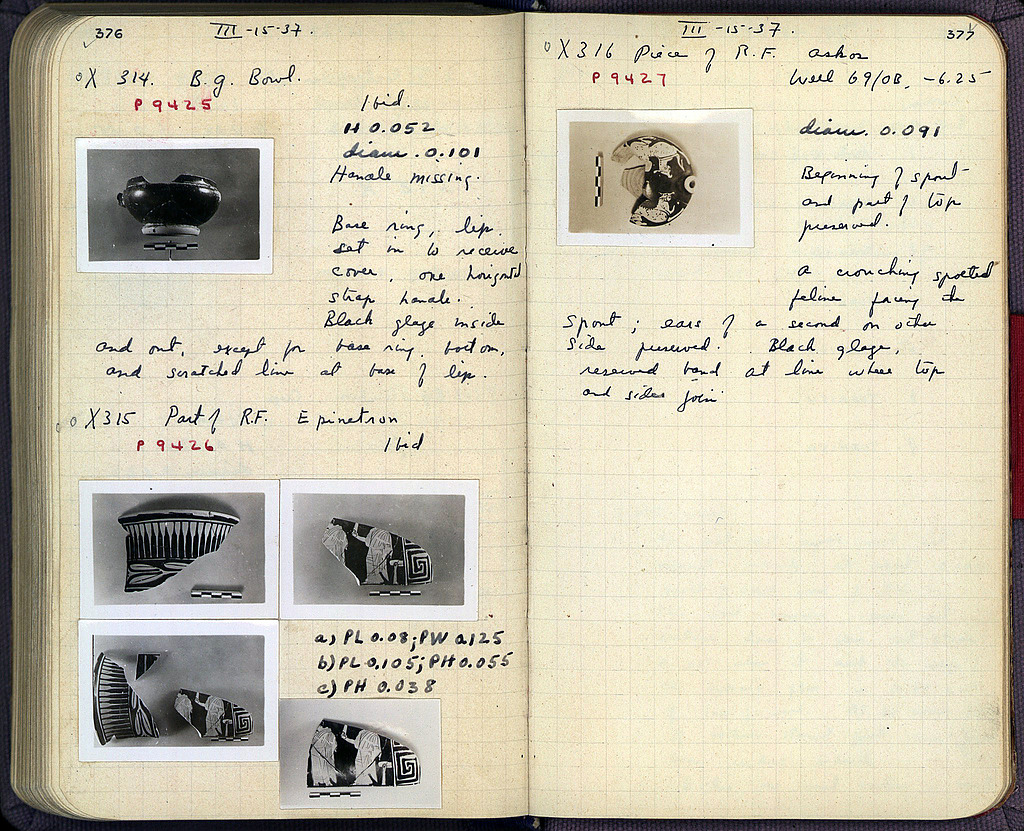 376
III -15-37.
X 314. B.g. Bowl.
P 9425
Ibid.
H 0.052
diam. 0.101
Handle missing.
Base ring, lip
set in to receive
cover, one horizontal
strap handle.
Black glaze inside
and out, except for base ring, bottom,
and scratched line at base of lip.
X315 Part of R.F. Epinetron
P 9426
Ibid
a) PL 0.08; PW 0.125
b) PL 0.105; PH 0.055
c) PH 0.038
377
III -15-37.
X316 Piece of R.F. askos
P 9427
Well 69/OB, -6.25
diam. 0.091
Beginning of spout
and part of top
preserved.
A crouching spotted
feline facing the
spout; ears of a second on other
side preserved. Black glaze,
reserved band at line where top
and sides join